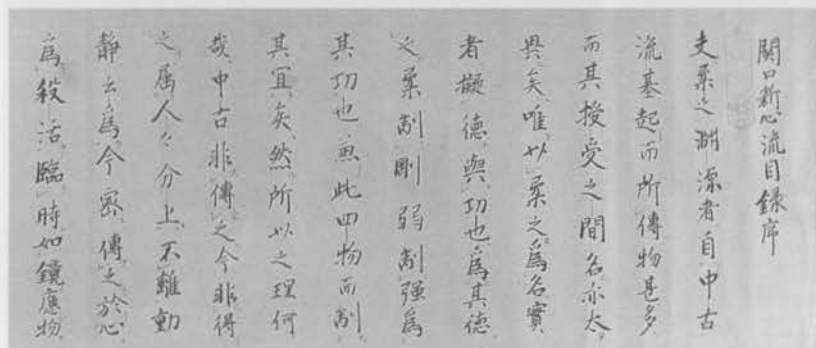 關口新心流目録序
夫柔之淵源者自中古
流甚起而所傳物甚多
而其授受之間名亦太
異矣唯以柔之爲名實
者擬德與功也爲其德
之柔制剛弱制强爲
其功也兼此四物而制
其宜矣然所以之理何
哉中古非傳之今非得
之属人々分上不離動
静云爲今密傳之於心
爲殺活臨時如鏡應物